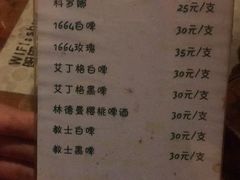 科罗娜 25元/支
1664白啤 30元/支
1664玫瑰 35元/支
艾丁格白啤 30元/支
艾丁格黑啤 30元/支
林德曼樱桃啤酒 30元/支
教士白啤 30元/支
教士黑啤 30元/支
WIFI